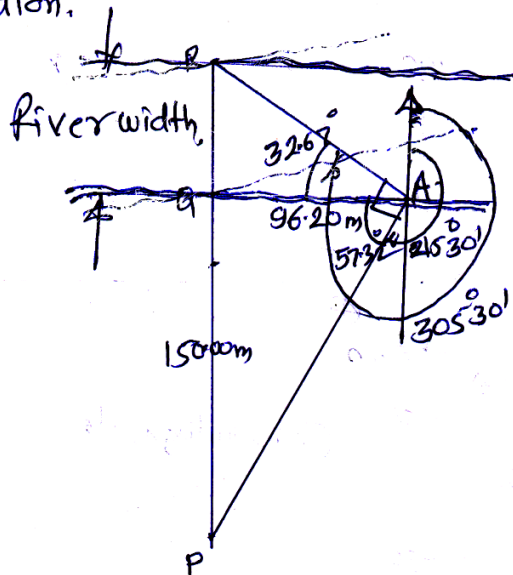 R
River width.
32.67°
A
Q
96.20m
57.32°
215°30'
305°30'
150.00m
P